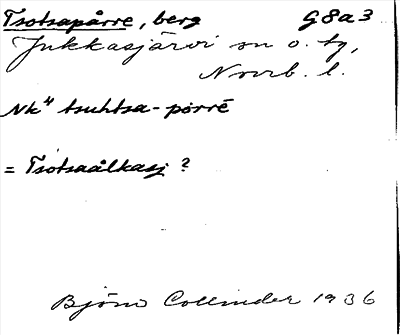 Tsotsapårre, berg G8a3
Jukkasjärvi sn o. tg,
Norrb. l.
Nk⁴ tsuhtsa-pörrē
= Tsotsaålkasj ?
Björn Collinder 1936